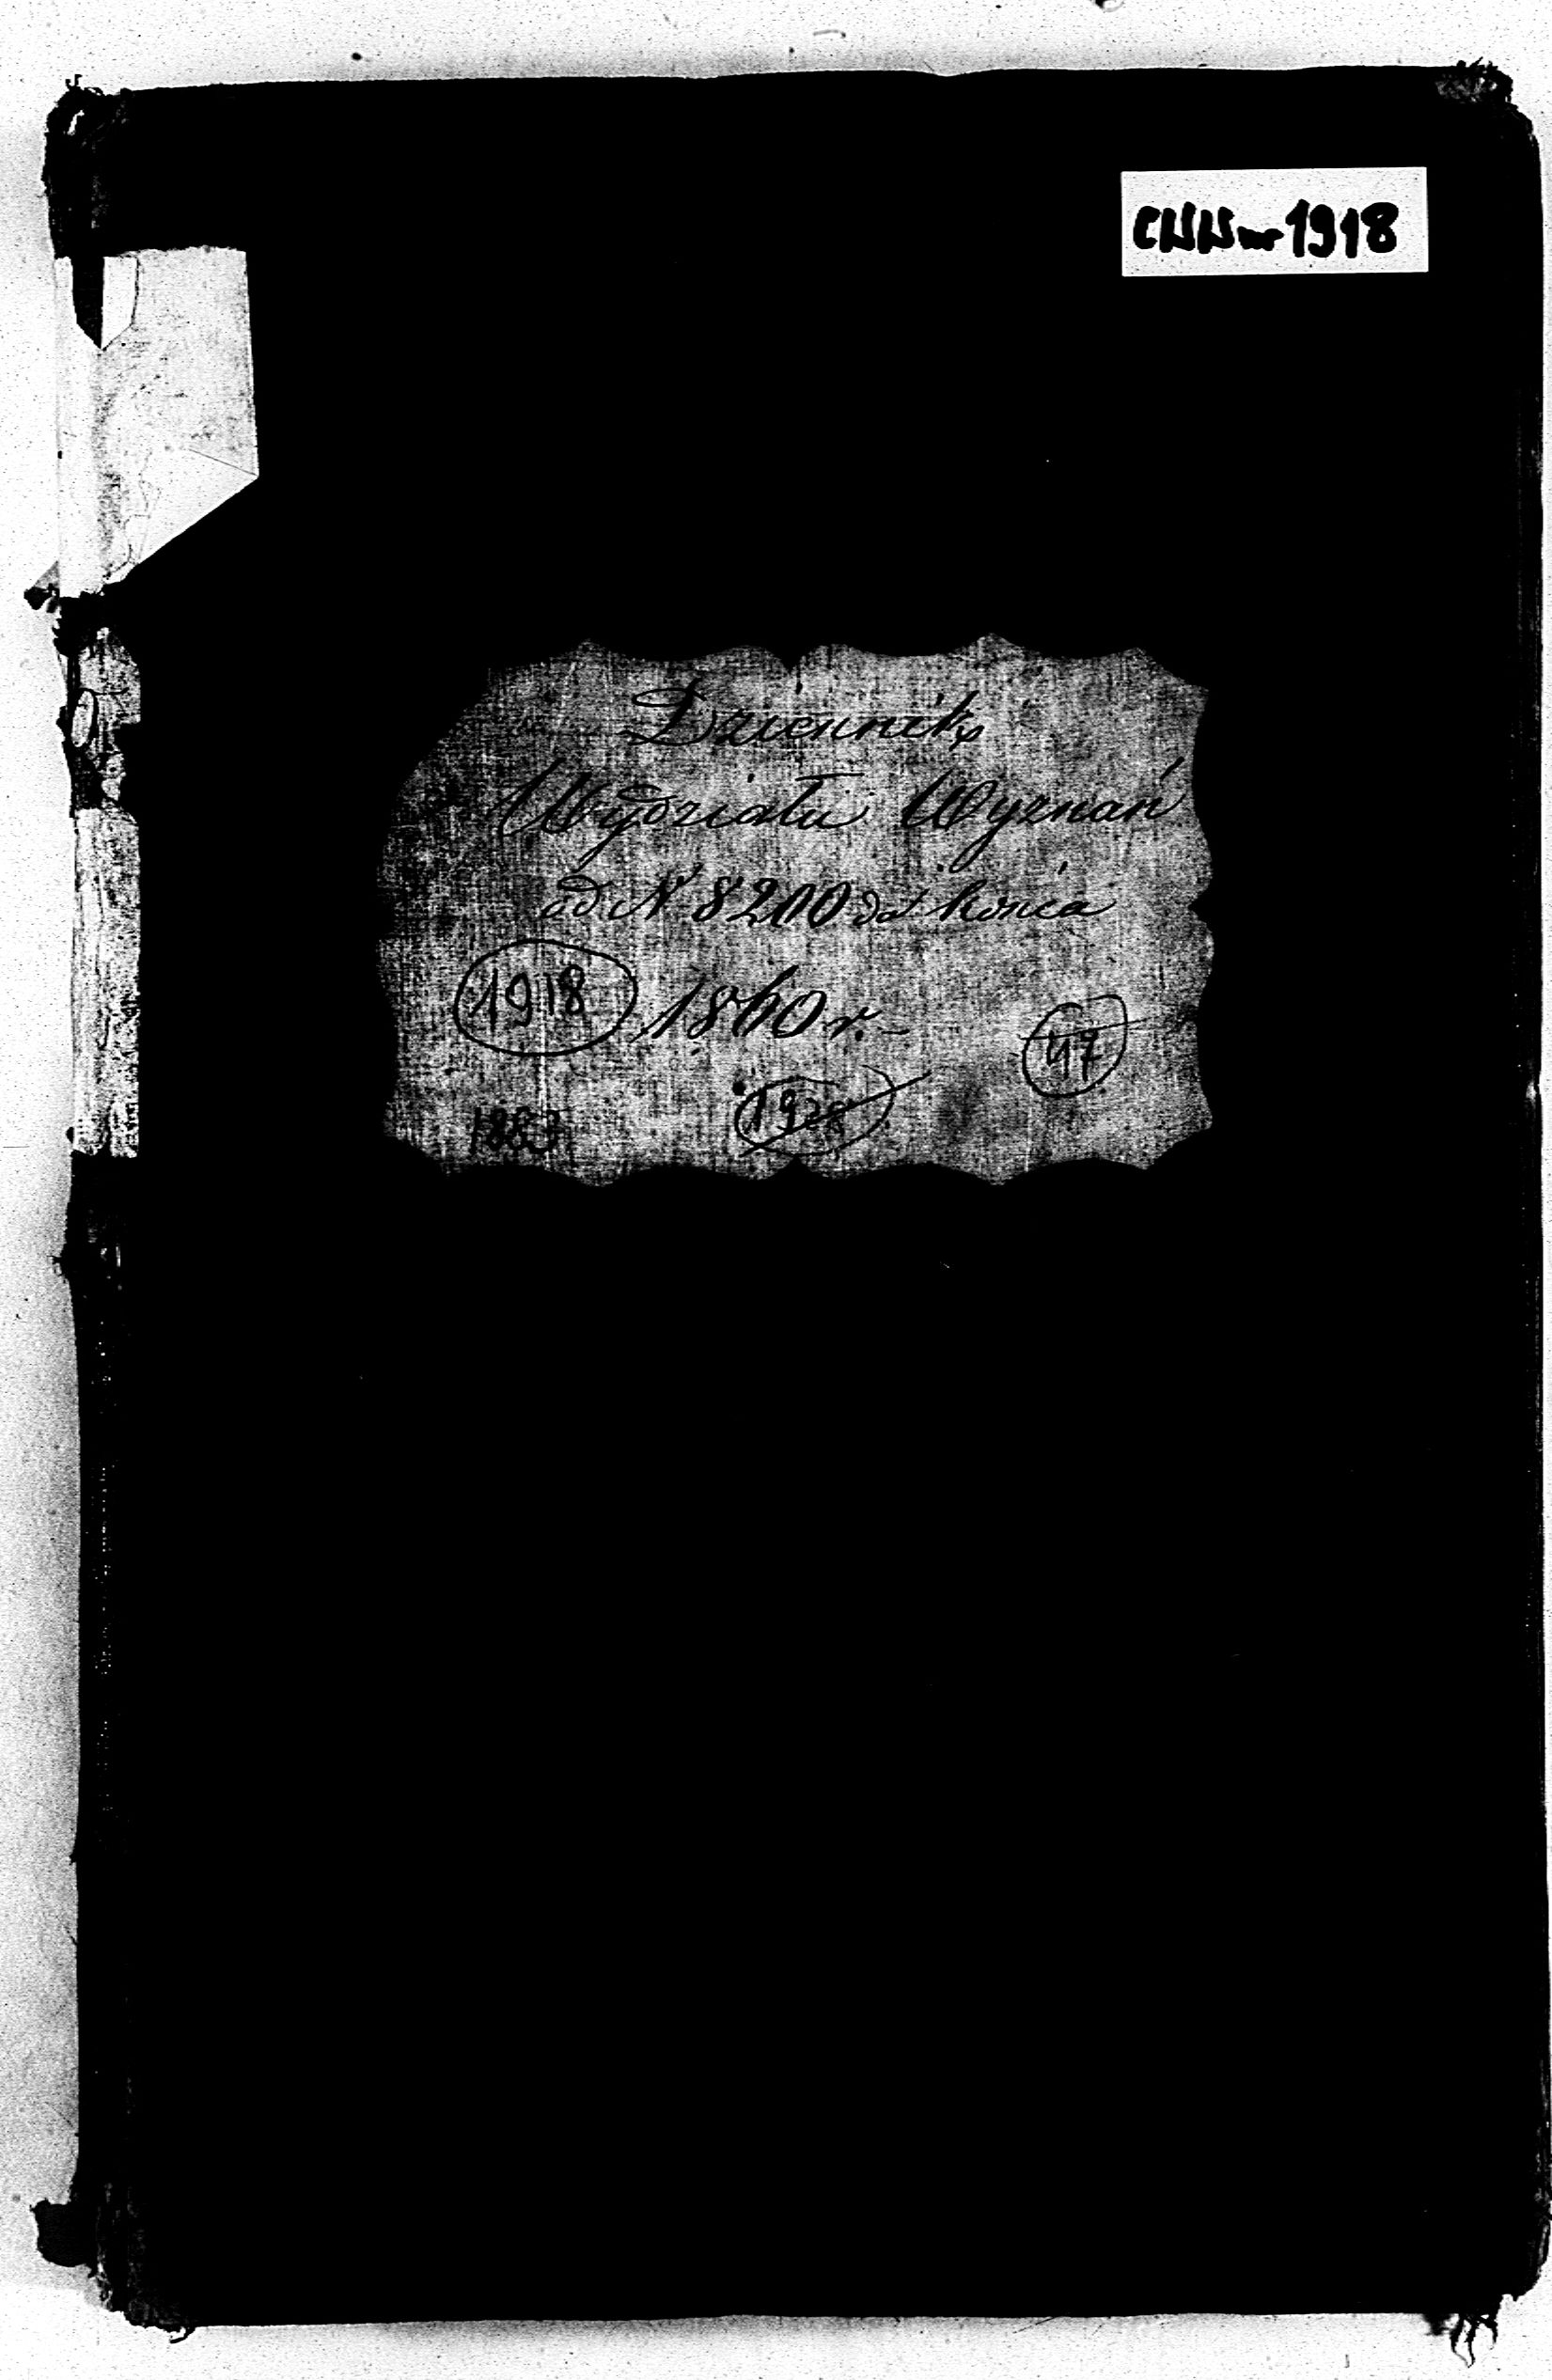 CWW nr 1918
Dziennik
Wydziału Wyznań
od N 8200 do końca
1918 1860 r.
47
1883